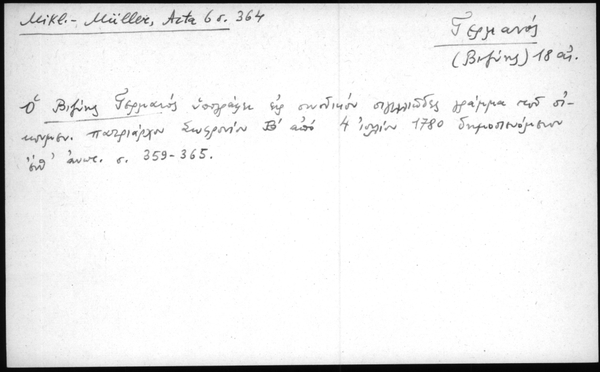 Mikl.-Müller, Acta 6 σ. 364
Γερμανός
(Βιζύης) 18 αἰ.
Ὁ Βιζύης Γερμανός ὑπογράφει εἰς συνοδικόν σιγιλλιῶδες γράμμα τοῦ οἰ-
κουμεν. πατριάρχου Σωφρονίου Β' ἀπό 4 ἰουλίου 1780 δημοσιευόμενον
ἐνθ' ἀνωτ. σ. 359-365.